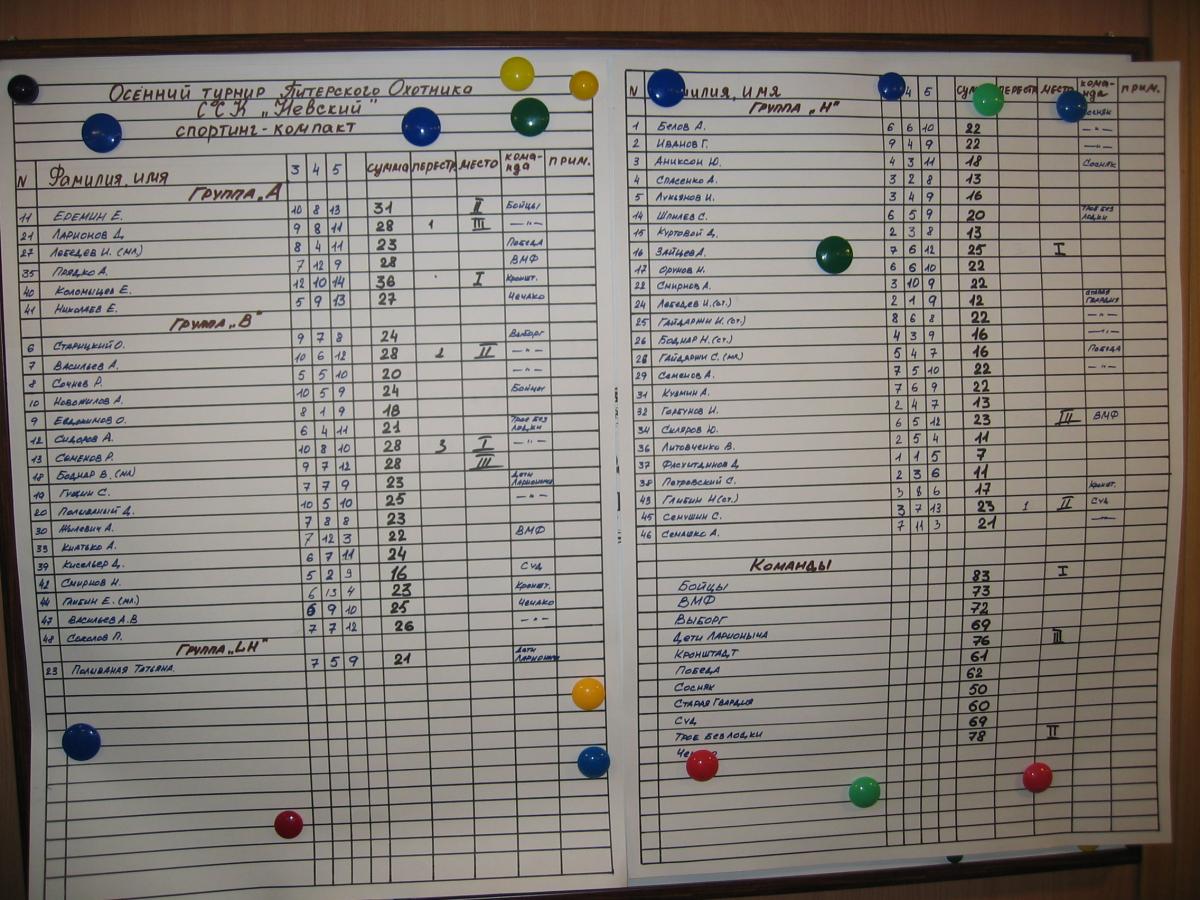 Осенний турнир Питерского Охотника
ССК „Невский"
спортинг-компакт
N Фамилия, имя 3 4 5 сумма перестр. место кома-нда прим.
Группа „А
11 Еремин Е. 10 8 13 31 II Бойцы
21 Ларионов Д. 9 8 11 28 1 III —"—
27 Лебедев И. (мл) 8 4 11 23 Победа
35 Прядко А. 7 12 9 28 ВМФ
40 Коломыцев Е. 12 10 14 36 I Кроншт.
41 Николаев Е. 5 9 13 27 Ченако
Группа „В"
6 Старицкий О. 9 7 8 24 Выборг
7 Васильев А. 10 6 12 28 2 II —"—
8 Сочнев Р. 5 5 10 20 —"—
10 Новожилов А. 10 5 9 24 Бойцы
9 Евдокимов О. 8 1 9 18
12 Сидоров А. 6 4 11 21 Трое без лодки
13 Семенов Р. 10 8 10 28 3 I —"—
18 Боднар В. (мл) 9 7 12 28 III
19 Гущин С. 7 7 9 23 Дети Ларионыча
20 Поливаный Д. 10 5 10 25 —"—
30 Жылевич А. 7 8 8 23
33 7 12 3 22 ВМФ
39 Кисельер Д. 6 7 11 24
42 Смирнов Н. 5 2 9 16 Суд
44 Глибин Е. (мл) 6 13 4 23 Кроншт.
47 Васильев А.В 6 9 10 25 Ченако
48 Соколов П. 7 7 12 26 —"—
Группа „LH"
23 Поливаная Татьяна. 7 5 9 21 Дети Ларионыча
N имя 4 5 место кома-нда прим.
Группа „Н"
1 Белов А. 6 6 10 22 —"—
2 Иванов Г. 9 4 9 22 —"—
3 Аниксон Ю. 4 3 11 18 Сосняк
4 Спасенко А. 3 2 8 13
5 Лукьянов И. 3 4 9 16
14 Шпилев С. 6 5 9 20 Трое без лодки
15 Куртовой Д. 2 3 8 13
16 Зайцев А. 7 6 12 25 I
17 Орунов Н. 6 6 10 22
22 Смирнов А. 3 10 9 22
24 Лебедев И.(ст.) 2 1 9 12 старая гвардия
25 Гайдаржи И.(ст.) 8 6 8 22 —"—
26 Боднар Н.(ст.) 4 3 9 16 —"—
28 Гайдаржи С.(мл) 5 4 7 16 Победа
29 Семенов А. 7 5 10 22 —"—
31 Кузмин А. 7 6 9 22
32 Горбунов И. 2 4 7 13
34 Скляров Ю. 6 5 12 23 III ВМФ
36 Литовченко В. 2 5 4 11
37 Фасхитдинов Д 1 1 5 7
38 Петровский С. 2 3 6 11
43 Глибин Н(ст.) 3 8 6 17 Кроншт.
45 Семушин С. 3 7 13 23 1 II Суд
46 Семашко А. 7 11 3 21 —"—
Команды
Бойцы 83 I
ВМФ 73
Выборг 72
Дети Ларионыча 69
Кронштадт 76 III
Победа 61
Сосняк 62
Старая Гвардия 50
Суд 60
Трое без лодки 69
78 II